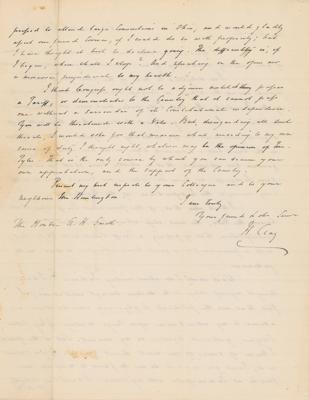 pressed to attend large Conventions in Ohio, and would gladly
afford our friend Corwin, if I could do so with propriety; but
I have thought it best to decline going. The difficulty is, if
I begin, where shall I stop? And speaking in the open air
is moreover prejudicial to my health.
I think Congress ought not to adjourn without passing
a Tariff, or demonstrate to the Country that it cannot pass
one without a surrender of all Constitutional independence.
You will be threatened with a Veto. But, disregarding all such
threats, I would vote for that measure what according to my own
sense of duty, I thought right, whatever may be the opinion of Mr.
Tyler. That is the only course by which you can secure your
own approbation, and the support of the Country.
Present my best respects to your Colleague and to your
neighbour Mr Huntington
I am truly
Your friend & ob. Serv.
H. Clay
The Honble